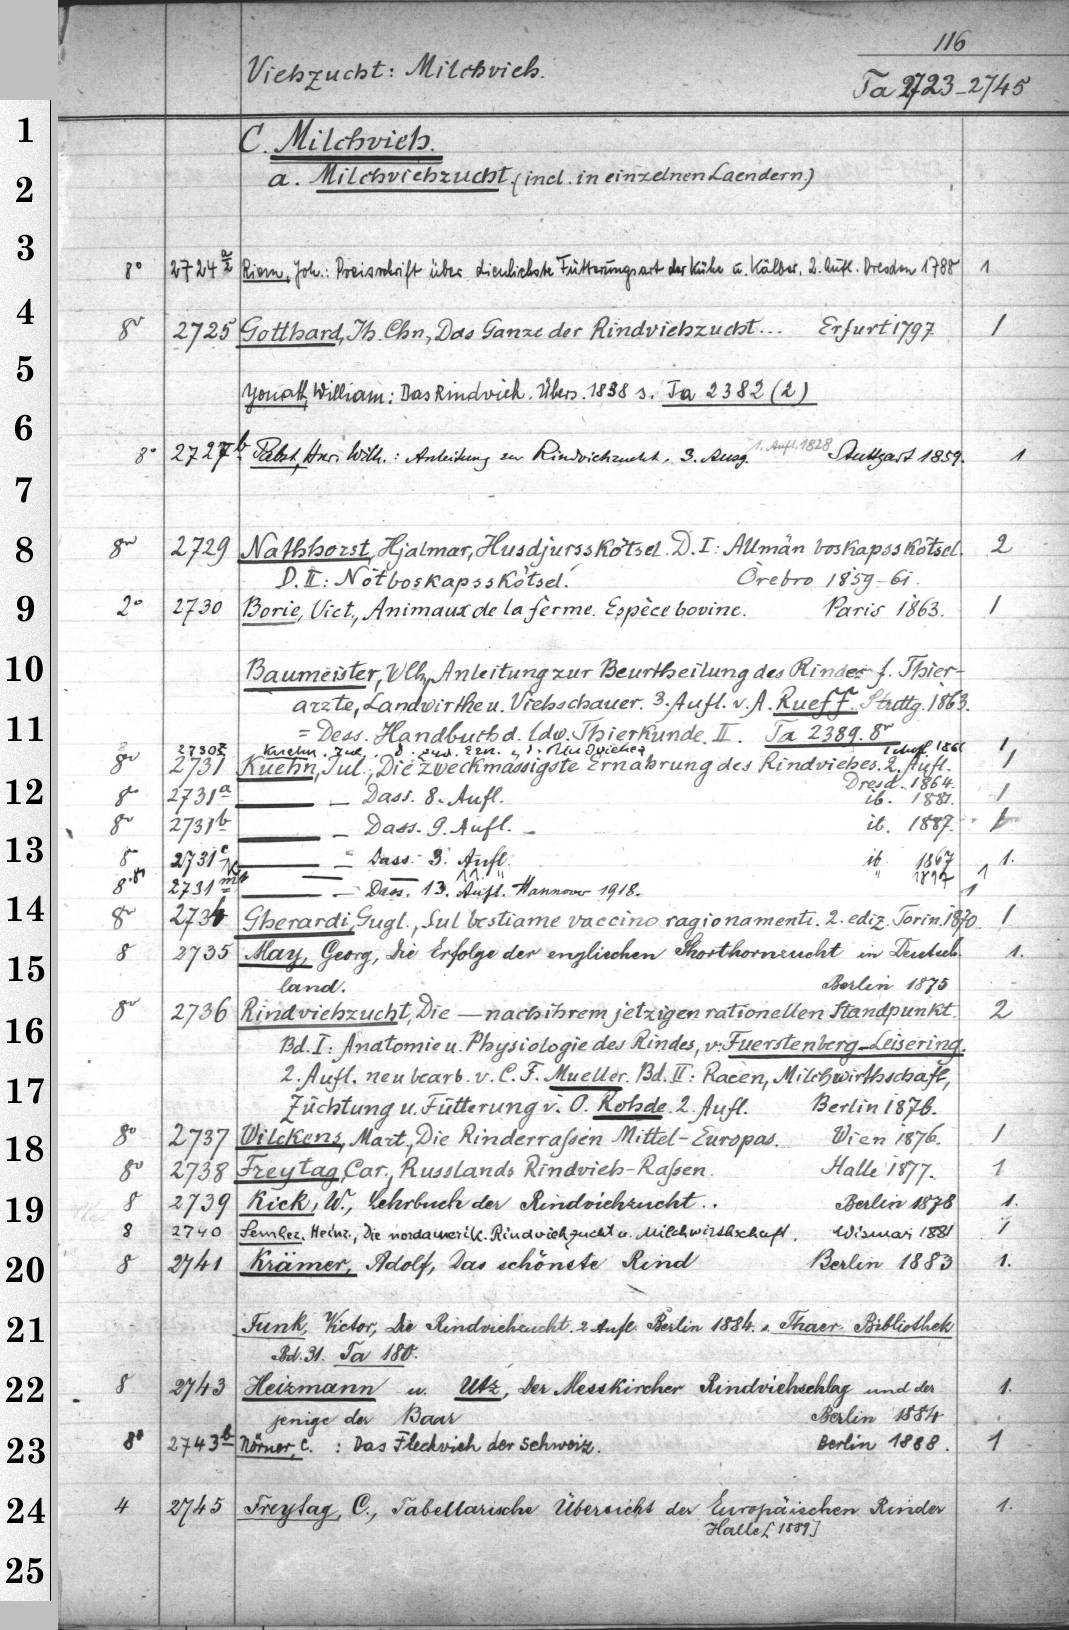 116
Viehzucht: Milchvieh.
Ta 2723-2745
1
C. Milchvieh.
2
a. Milchviehzucht (incl. in einzelnen Laendern.)
3
8° 2724 a/2 Riem, Joh.: Preisschrift über dienlichste Fütterungsart der Kühe u. Kälber. 2. Aufl. Dresden 1788 1
4
8° 2725 Gotthard, Jh. Chn, Das Ganze der Rindviehzucht... Erfurt 1797 1
5
Youatt, William: Das Rindvieh. Übers. 1838 s. Ta 2382 (2)
6
1. Aufl. 1828
8° 2727 b Pabst, Wilh.: Anleitung zur Rindviehzucht. 3. Ausg. Stuttgart 1859. 1
7
8 8° 2729 Nathhorst, Hjalmar, Husdjursskötsel. D. I: Allmän boskapsskötsel. 2
D. II: Nötboskapsskötsel. Örebro 1859-61.
9 2° 2730 Borie, Vict., Animaux de la ferme. Espèce bovine. Paris 1863. 1
10 Baumeister, Wlh, Anleitung zur Beurtheilung des Rindes f. Thier-
arzte, Landwirthe u. Viehschauer. 3. Aufl. v. A. Rueff. Stuttg. 1863.
11 = Dess. Handbuch d. ldw. Thierkunde II. Ta 2389. 8°
2730z Kuehn, Jul. 1861 1
8° 2731 Kuehn, Jul., Die zweckmässigste Ernährung des Rindviehes. 2. Aufl. 1
Dresd. 1864.
12 8° 2731a — — Dass. 8. Aufl. ib. 1881. 1
8° 2731b — — Dass. 9. Aufl. ib. 1887.
13 8 2731c — — Dass. 3. Aufl. ib 1867 1.
1897 1
8° 2731m — — Dass. 13. Aufl. Hannover 1918. 1
14 8° 2734 Gherardi, Gugl., Sul bestiame vaccino ragionamenti. 2. ediz. Torin. 1870. 1
8 2735 May, Georg, Die Erfolge der englischen Shorthornzucht in Deutsch- 1.
15
land. Berlin 1875
8° 2736 Rindviehzucht, Die — nach ihrem jetzigen rationellen Standpunkt. 2
16
Bd. I: Anatomie u. Physiologie des Rindes, v. Fuerstenberg-Leisering.
2. Aufl. neu bearb. v. C. F. Mueller. Bd. II: Racen, Milchwirthschaft,
17
Züchtung u. Fütterung v. O. Rohde. 2. Aufl. Berlin 1876.
18 8° 2737 Wilckens, Mart., Die Rinderraßen Mittel-Europas. Wien 1876. 1
8° 2738 Freytag, Car., Russlands Rindvieh-Raßen. Halle 1877. 1
19 8 2739 Kick, W., Lehrbuch der Rindviehzucht.. Berlin 1878 1.
8 2740 Semler, Heinr., Die nordamerik. Rindviehzucht u. Milchwirthschaft. Wismar 1881 1
20 8 2741 Krämer, Adolf, Das schönste Rind Berlin 1883 1.
21 Funk, Victor, Die Rindviehzucht. 2. Aufl. Berlin 1884. s. Thaer Bibliothek
Bd. 31. Ta 180.
22 8 2743 Heizmann u. Utz, Der Messkircher Rindviehschlag und der 1.
jenige der Baar Berlin 1884
23 8° 2743b Nörner, C.: Das Fleckvieh der Schweiz. Berlin 1888. 1
24 4 2745 Freytag, C., Tabellarische Übersicht der Europäischen Rinder 1.
Halle [1889]
25